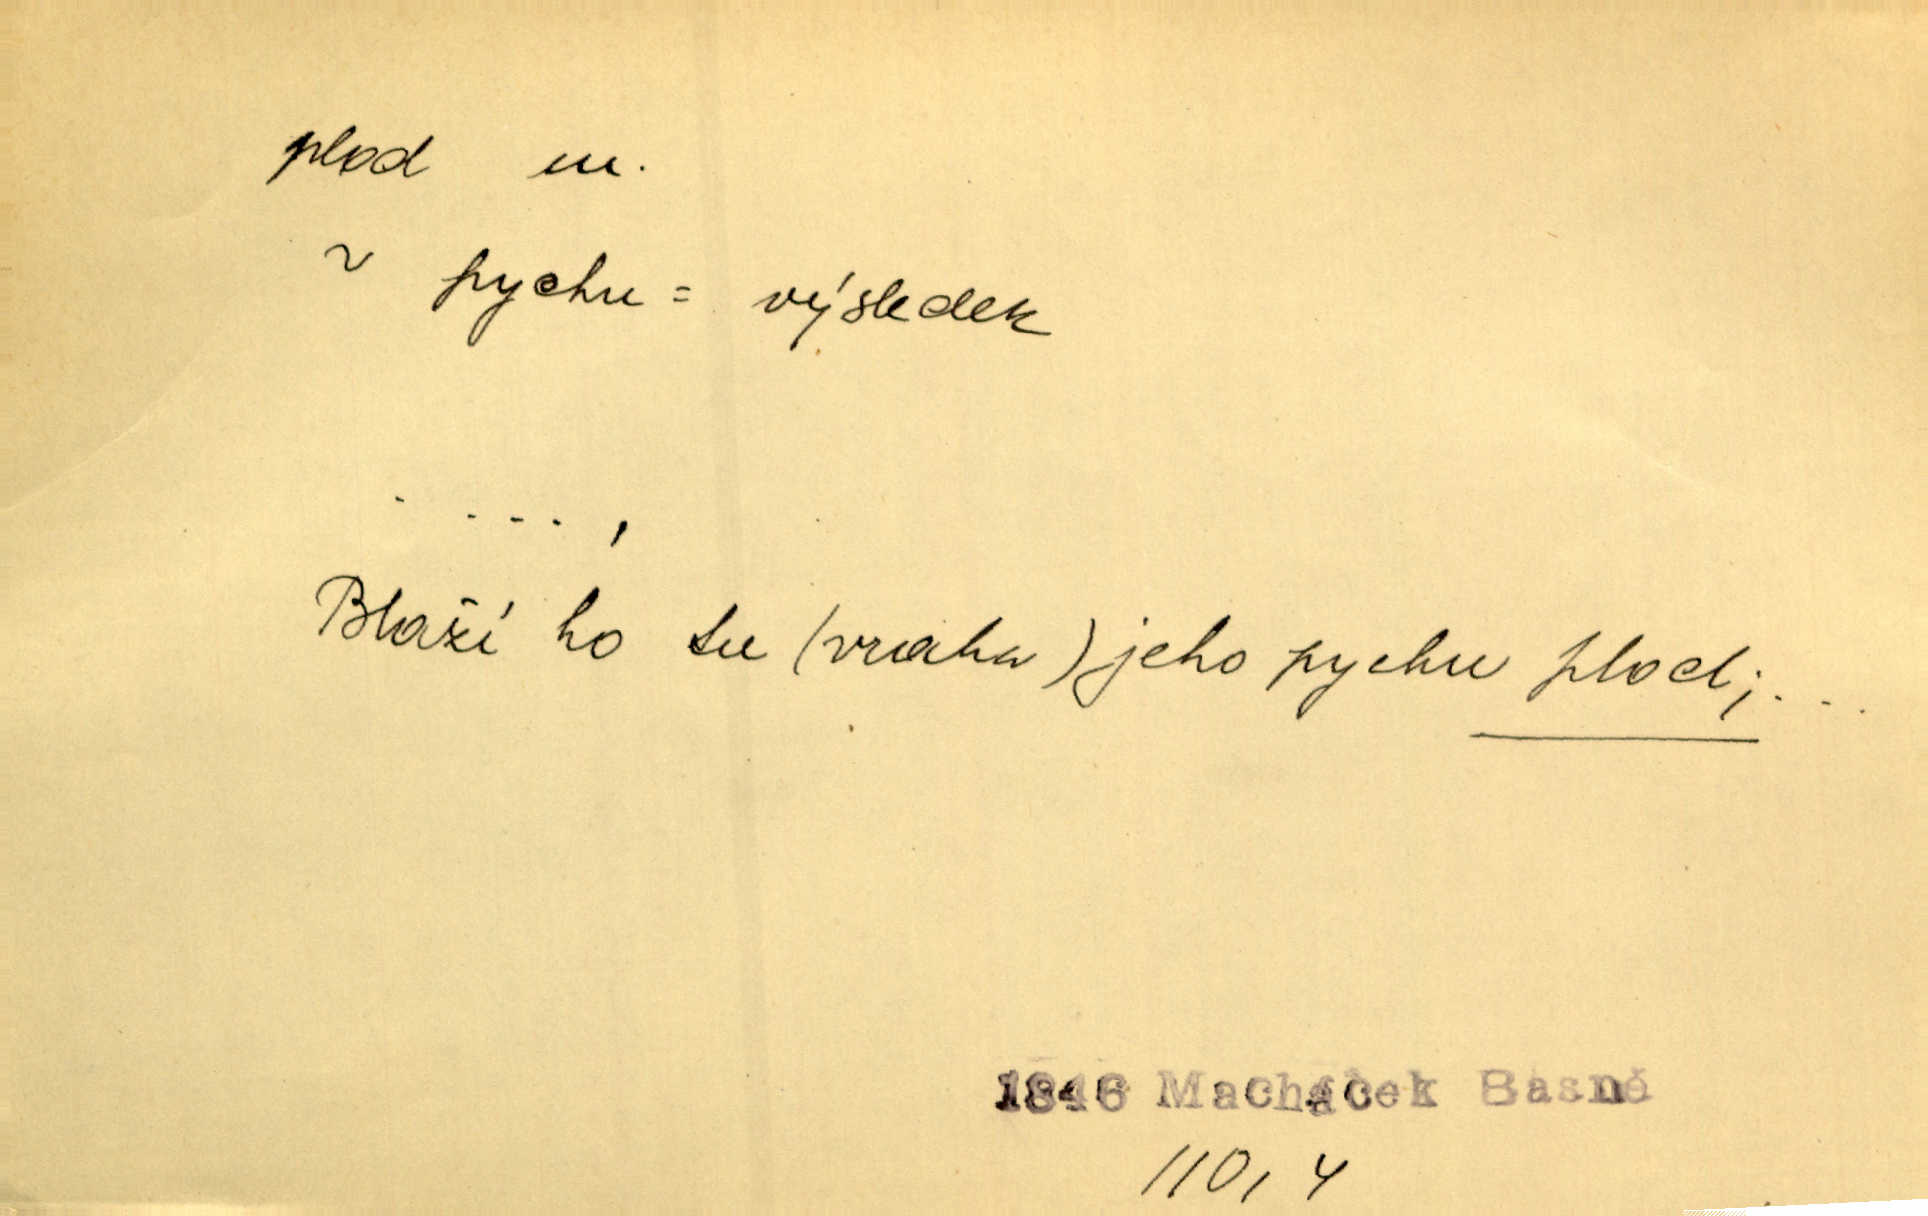 plod m.
~ pychu = výsledek
. . . . . ,
Blaží ho tu (vraha) jeho pychu plod; . . .
1846 Macháček Basně
110, 4